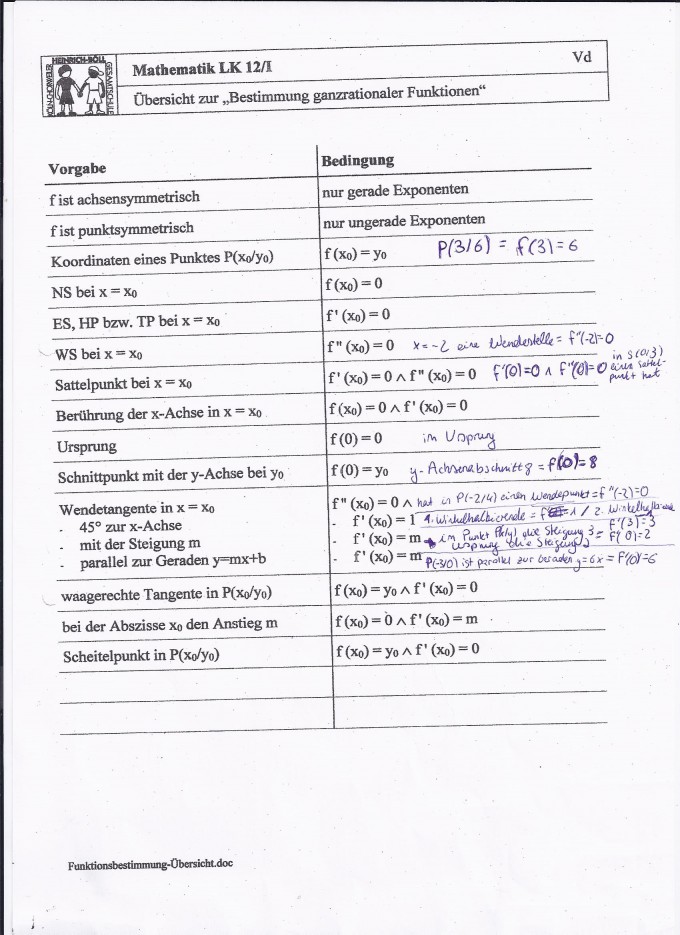 HEINRICH-BÖLL
GESAMTSCHULE
Mathematik LK 12/I
Vd
Übersicht zur „Bestimmung ganzrationaler Funktionen“
Vorgabe Bedingung
f ist achsensymmetrisch nur gerade Exponenten
f ist punktsymmetrisch nur ungerade Exponenten
Koordinaten eines Punktes P(x₀/y₀) f (x₀) = y₀ P(3/6) = f(3) = 6
NS bei x = x₀ f (x₀) = 0
ES, HP bzw. TP bei x = x₀ f ' (x₀) = 0
WS bei x = x₀ f '' (x₀) = 0 x = -2 eine Wendestelle = f''(-2)=0
Sattelpunkt bei x = x₀ f ' (x₀) = 0 ∧ f '' (x₀) = 0 f'(0)=0 ∧ f''(0)=0 in S(0/3)
einen Sattel-
punkt hat
Berührung der x-Achse in x = x₀ f (x₀) = 0 ∧ f ' (x₀) = 0
Ursprung f (0) = 0 im Ursprung
Schnittpunkt mit der y-Achse bei y₀ f (0) = y₀ y-Achsenabschnitt 8 = f(0)=8
Wendetangente in x = x₀ f '' (x₀) = 0 ∧ hat in P(-2/4) einen Wendepunkt = f''(-2)=0
- 45° zur x-Achse - f ' (x₀) = 1 1. Winkelhalbierende = 1 / 2. Winkelhalbierende
- mit der Steigung m - f ' (x₀) = m im Punkt die Steigung 3 = f'(3)=3
Ursprung die Steigung 2 = f'(0)=2
- parallel zur Geraden y=mx+b - f ' (x₀) = m P(-3/0) ist parallel zur Geraden y=6x = f'(0)=6
waagerechte Tangente in P(x₀/y₀) f (x₀) = y₀ ∧ f ' (x₀) = 0
bei der Abszisse x₀ den Anstieg m f (x₀) = 0 ∧ f ' (x₀) = m
Scheitelpunkt in P(x₀/y₀) f (x₀) = y₀ ∧ f ' (x₀) = 0
Funktionsbestimmung-Übersicht.doc